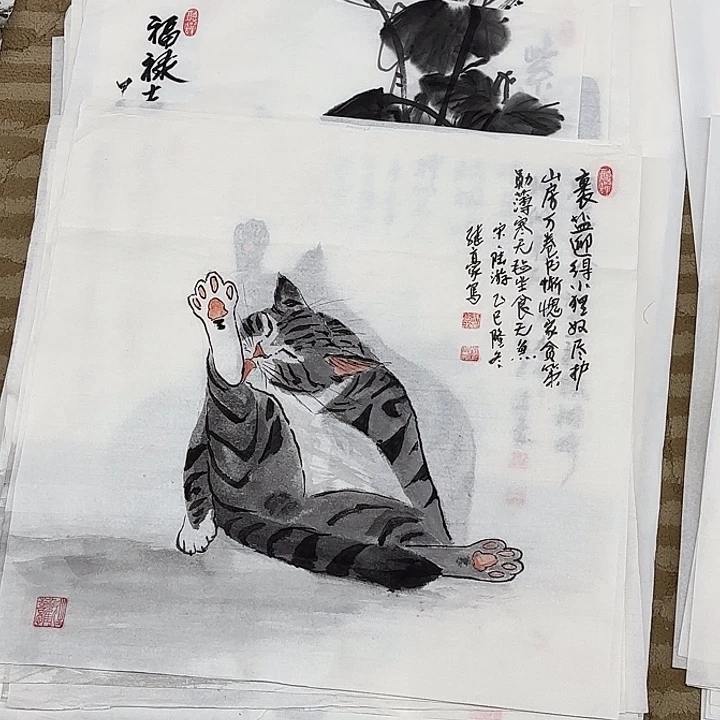 福禄
裹盐迎得小狸奴尽护
山房万卷书惭愧家贫策
勋薄寒无毡坐食无鱼
宋·陆游 乙巳隆冬
继豪写